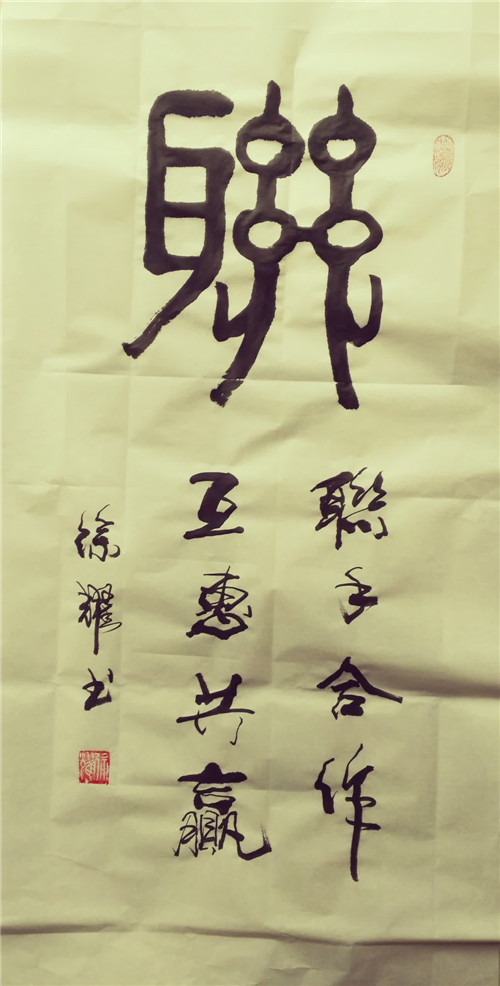 聯
聯手合作
互惠共贏
徐耀书